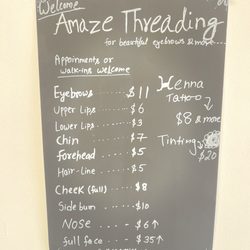 Welcome
Amaze Threading
for beautiful eyebrows & more
Appointments or
walk-ins welcome
Eyebrows .... $11
Upper Lips .... $6
Lower Lips .... $3
Chin .... $7
Forehead .... $5
Hair-line .... $5
Cheek (full) .... $8
Side burn .... $10
Nose - $6↑
full face - $35↑
Henna
Tattoo
$8 & more
Tinting
$20